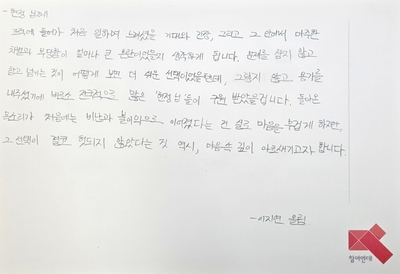 - 현정 님에게
프리에 들어가 처음 일하며 느꼈었을 기대와 긴장, 그리고 그 안에서 마주한
차별과 부당함이 얼마나 큰 혼란이었을지 생각하게 됩니다. 문제를 삼지 않고
덮고 넘기는 것이 어떻게 보면 더 쉬운 선택이었을텐데, 그렇지 않고 용기를
내주셨기에 비로소 전국적으로 많은 '현정 님'들이 구원 받았을겁니다. 돌아온
목소리가 처음에는 비난과 불이익으로 이어졌다는 건 실로 마음을 무겁게 하지만,
그 선택이 결코 헛되지 않았다는 것 역시, 마음속 깊이 아로새기고자 합니다.
- 이지현 올림
참여연대